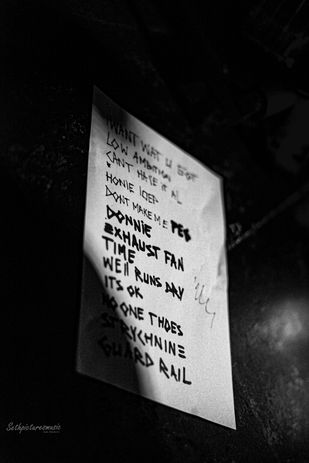 I WANT WAT U GOT
LOW AMBITION
CAN'T HAVE IT AL
HONIE
DONT MAKE ME PES
DONNIE
EXHAUST FAN
TIME
WELL RUNS DRY
ITS OK
NO ONE THOES
STRYCHNINE
GUARD RAIL
Sethpicturesmusic